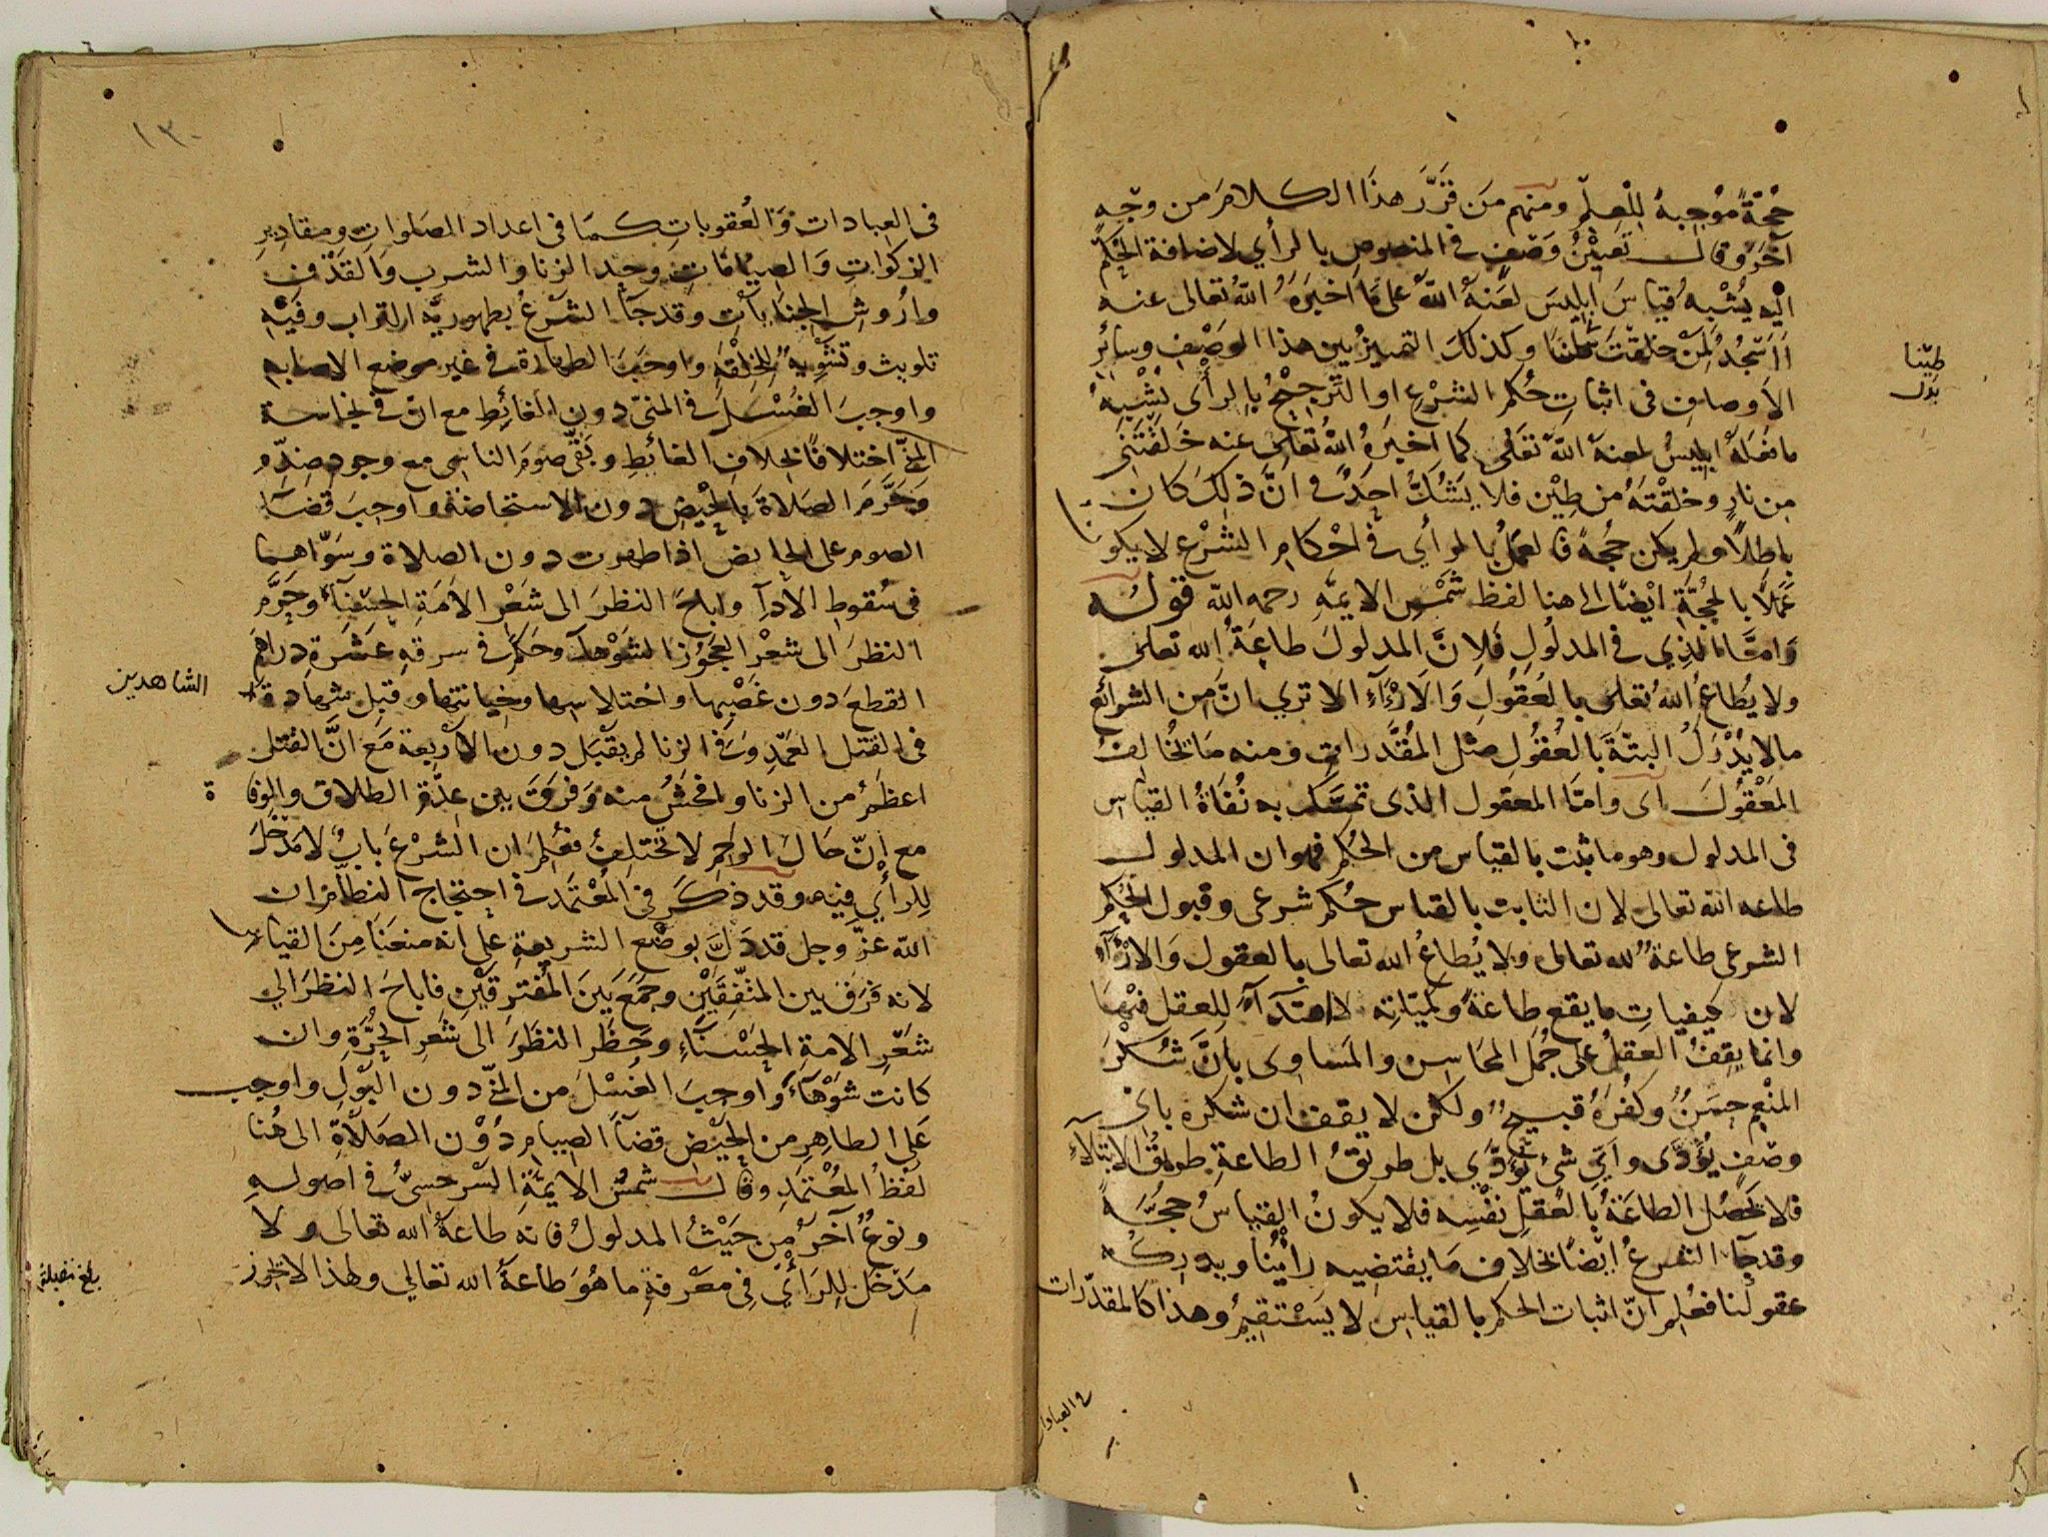 حجّةً موجبةً للعلم ومنهم مَن قرّر هذا الكلام من وجهٍ
آخر وقال تعيين وصفٍ في المنصوص بالرأي لاضافة الحكم
اليه يشبه قياس ابليس لعنه الله على ما اخبره الله تعالى عنه
أاسجد لمن خلقت طينا وكذلك التمييز بين هذا الوصف وسائر
طينا
بدل
الاوصاف في اثبات حكم الشرع او الترجيح بالرأى يشبه
ما فعله ابليس لعنه الله تعالى كما اخبره الله تعالى عنه خلقتنى
من نار وخلقته من طين فلا يشكّ احدٌ في انّ ذلك كان
باطلاً ولم يكن حجة فالعمل بالرأي في احكام الشرع لا يكون
عملاً بالحجّة ايضًا الى هنا لفظ شمس الايمّة رحمه الله قوله
وامّا الذي في المدلول فلانّ المدلول طاعة الله تعالى
ولا يُطاع الله تعالى بالعقول والاراء الا تري انّ من الشرائع
ما لا يدرك البتّة بالعقول مثل المقدّرات ومنه ما يخالف
المعقول اى وامّا المعقول الذى تمسّك به نفاة القياس
فى المدلول وهو ما ثبت بالقياس من الحكم فهو ان المدلول
طاعه الله تعالى لان الثابت بالقياس حكم شرعى وقبول الحكم
الشرعى طاعة لله تعالى ولا يُطاع الله تعالى بالعقول والارآء
لان كيفيات ما يقع طاعةً وكميّاته لا اهتداء للعقل فيها
وانما يقف العقل على جمل المحاسن والمساوى بانّ شكر
المنعم حسنٌ وكفره قبيحٌ ولكن لا يقف ان شكره باى
وصفٍ يؤدّى وايّ شئ يؤدّي بل طريق الطاعة طريق الابتلاء
فلا تحصل الطاعة بالعقل نفسه فلا يكون القياس حجّةً
وقد جآء الشرع ايضًا بخلاف ما يقتضيه رأيُنا ويدركه
عقولنا فعُلم انّ اثبات الحكم بالقياس لا يستقيم وهذا كالمقدّرات
في العبادات
١٣٠
فى العبادات والعقوبات كما فى اعداد الصلوات ومقادير
الزكوات والصيامات وحد الزنا والشرب والقذف
واُروش الجنايات وقد جآء الشرع بطهوريّة التراب وفيه
تلويث وتشويه للخلقة واوجب الطهارة في غير موضع الاصابة
واوجب الغسل في المنىّ دون الغائط مع انّ في نجاسة
المنيّ اختلافًا بخلاف الغائط وبقّى صوم الناسى مع وجود ضدّه
وحرّم الصلاة بالحيض دون الاستحاضة واوجب قضآء
الصوم على الحايض اذا طهرت دون الصلاة وسوّاهما
فى سقوط الادآء واباح النظر الى شعر الامة الحسنآء وحرّم
النظر الى شعر العجوز الشوهاء وحكم في سرقه عشرة دراهم
القطع دون غصبها واختلاسها وخيانتها وقبل شهادة
الشاهدين
فى القتل العمد وفي الزنا لم يقبل دون الاربعة مع انّ القتل
اعظم من الزنا وافحش منه وفرق بين عدّة الطلاق والوفاة
مع انّ حال الرحم لا تختلف فعُلم ان الشرع بابٌ لا مدخل
للرأي فيه وقد ذكر في المعتمد في احتجاج النظّام ان
الله عزّ وجل قد دلّ بوضع الشريعة على انه منعنا من القياس
لانه فرق بين المتّفقين وجمع بين المفترقين فاباح النظر الي
شعر الامة الحسناء وحظر النظر الى شعر الحرّة وان
كانت شوهآء واوجب الغسل من المنيّ دون البول واوجب
على الطاهر من الحيض قضآء الصيام دون الصلاة الى هنا
لفظ المعتمد وقال شمس الايمّة السرخسىّ في اصوله
ونوعٌ آخر من حيث المدلول فانه طاعة الله تعالى ولا
مدخل للرأي في معرفة ما هو طاعة الله تعالي ولهذا لا يجوز
بلغ مقابلة